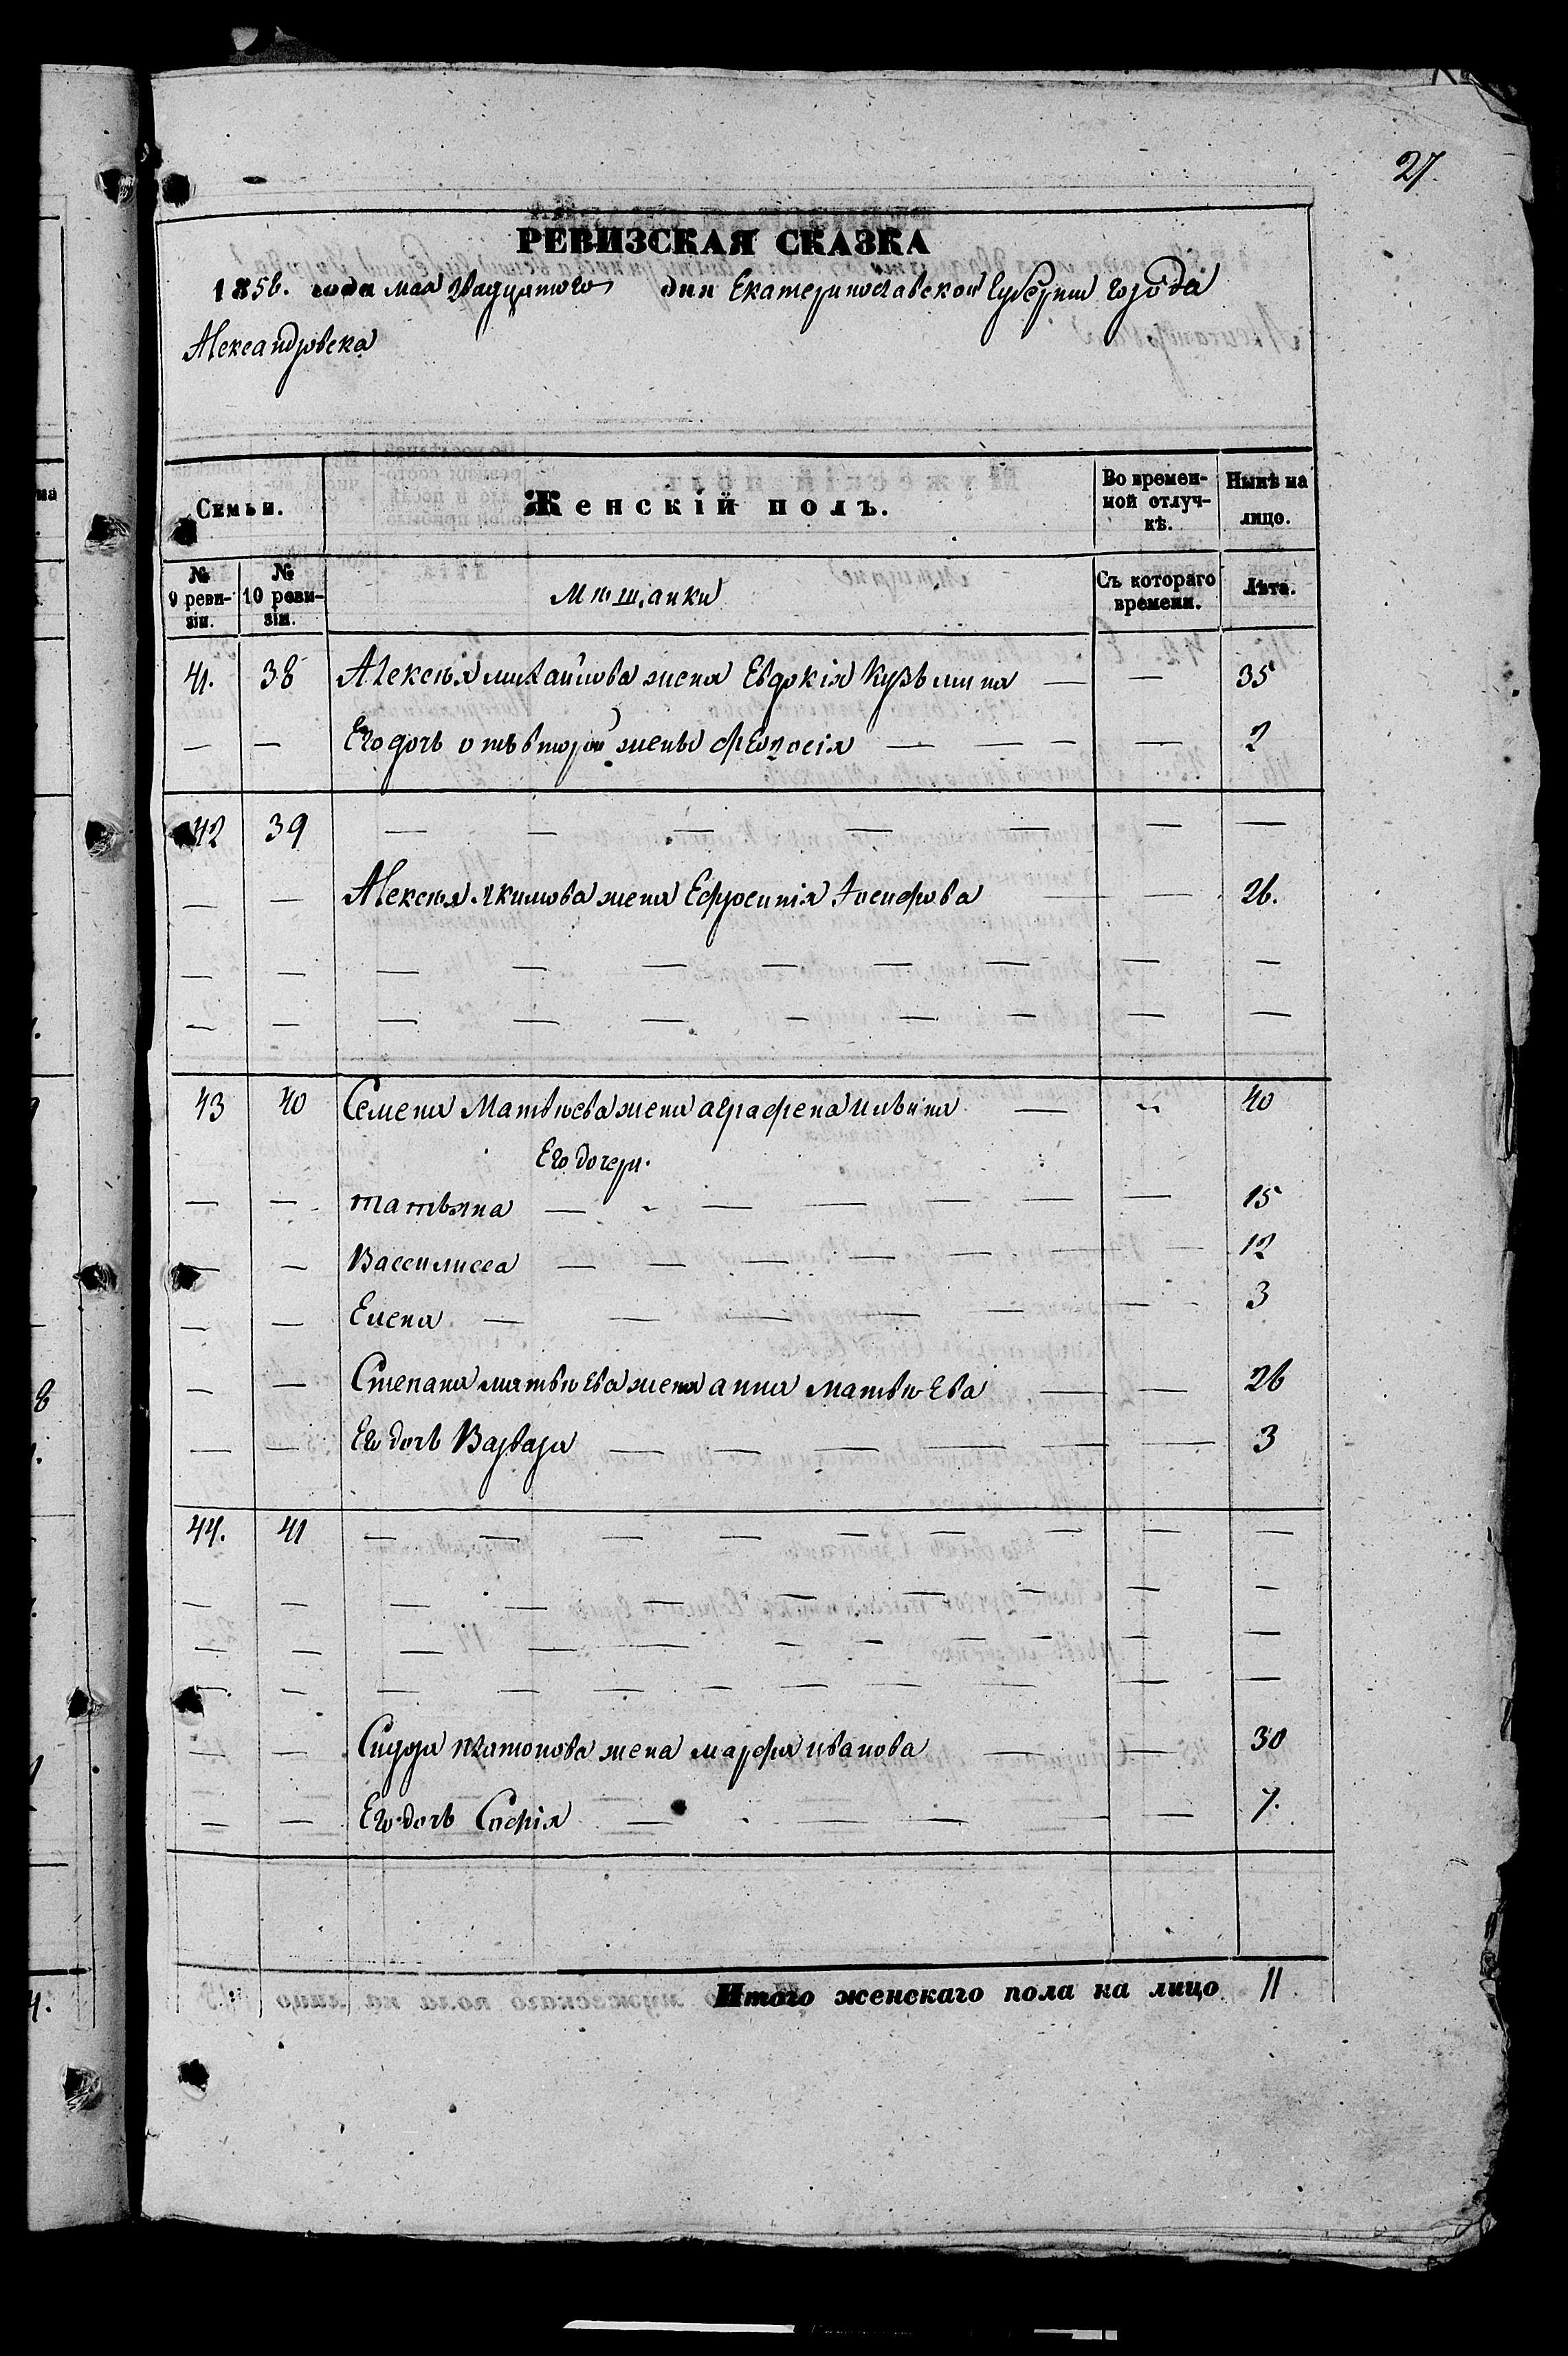 27.
РЕВИЗСКАЯ СКАЗКА
1856. года мая двадцятого дня Екатеринославской Губернии города
Александровска
Семьи.
Женскій полъ.
Во времен-
ной отлуч-
кѣ.
Нынѣ на
лицо.
№
9 реви-
зіи.
№
10 реви-
зіи.
Мѣщанки
Съ котораго
времени.
Лѣта.
41. 38 Алексѣя михайлова жена Евдокія Кузьмина — — 35
— — Его дочь отъ второй жены Феодосія — — — — 2
42 39 — — — — — — —
— — Алексѣя Акимова жена Ефросинія Іосифова — — 26.
— — — — — — — — — —
— — — — — — — — — —
43 40 Семена Матвѣева жена аграфена ильина — " 40
Его дочери.
— — татьяна — - — — — — — 15
— — Вассилисса — — — — — — — 12
— — Елена — — — — — — 3
— — Степана матвѣева жена анна матвѣева — — 26
— — Его дочь Варвара — — — — — — 3
44. 41 — — — — — — — — —
— — — — — — — — — —
— — — — — — — — — —
— — — — — — — — — —
— — Сидора платонова жена марфа иванова — — 30
— — Его дочь Софія — — — — — 7.
Итого женскаго пола на лицо 11